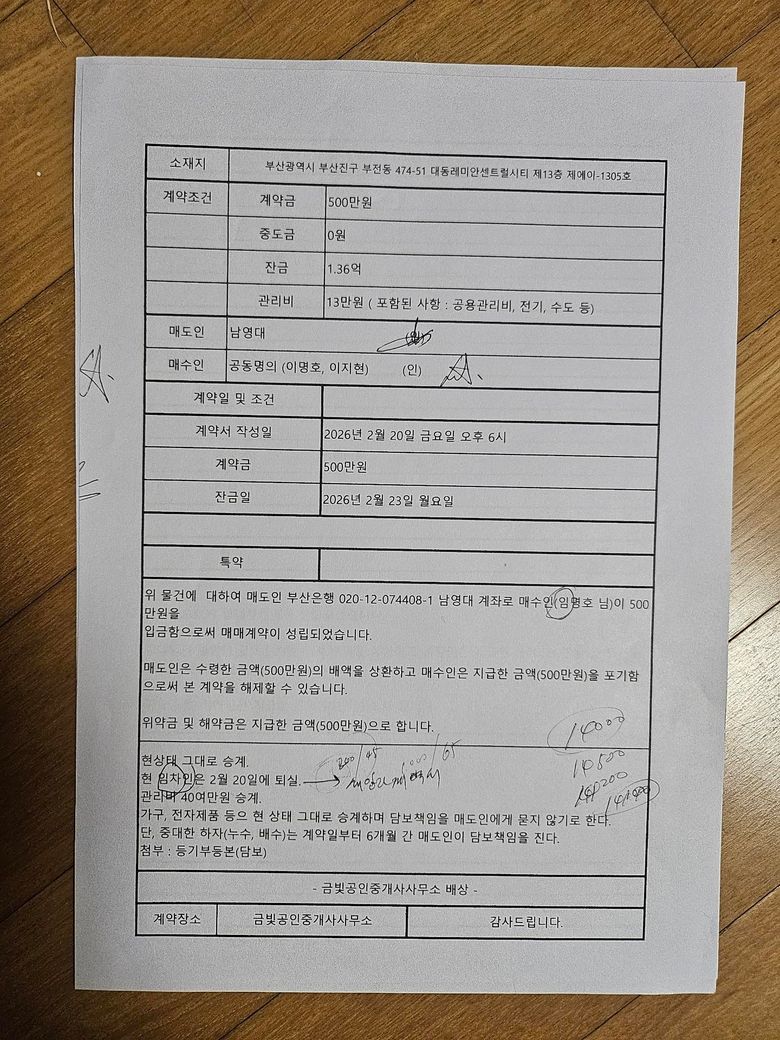 소재지 부산광역시 부산진구 부전동 474-51 대동레미안센트럴시티 제13층 제에이-1305호
계약조건 계약금 500만원
중도금 0원
잔금 1.36억
관리비 13만원 ( 포함된 사항 : 공용관리비, 전기, 수도 등)
매도인 남영대
매수인 공동명의 (이명호, 이지현) (인)
계약일 및 조건
계약서 작성일 2026년 2월 20일 금요일 오후 6시
계약금 500만원
잔금일 2026년 2월 23일 월요일
특약
위 물건에 대하여 매도인 부산은행 020-12-074408-1 남영대 계좌로 매수인(임명호 님)이 500
만원을
입금함으로써 매매계약이 성립되었습니다.
매도인은 수령한 금액(500만원)의 배액을 상환하고 매수인은 지급한 금액(500만원)을 포기함
으로써 본 계약을 해제할 수 있습니다.
위약금 및 해약금은 지급한 금액(500만원)으로 합니다.
14000
14500
현상태 그대로 승계.
현 임차인은 2월 20일에 퇴실.
관리비 40여만원 승계.
가구, 전자제품 등으 현 상태 그대로 승계하며 담보책임을 매도인에게 묻지 않기로 한다.
단, 중대한 하자(누수, 배수)는 계약일부터 6개월 간 매도인이 담보책임을 진다.
첨부 : 등기부등본(담보)
- 금빛공인중개사사무소 배상 -
계약장소 금빛공인중개사사무소 감사드립니다.